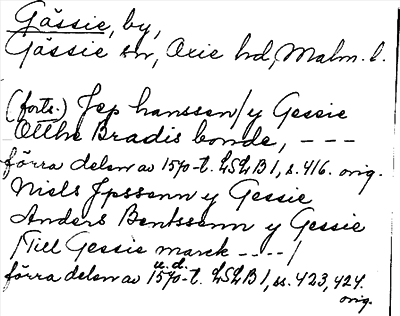 Gässie, by,
Gässie sn, Oxie hd, Malm. l.
(forts.) Jep hanssen / y Gessie
Otthe Bradis bonde, - - -
förra delen av 1570-t. LSLB 1, s. 416. orig.
Niels Jpssenn y Gessie
Anders Bentssenn y Gessie
/Till Gessie marck - - - - /
u. d.
förra delen av 1570-t. LSLB 1, ss. 423, 424.
orig.